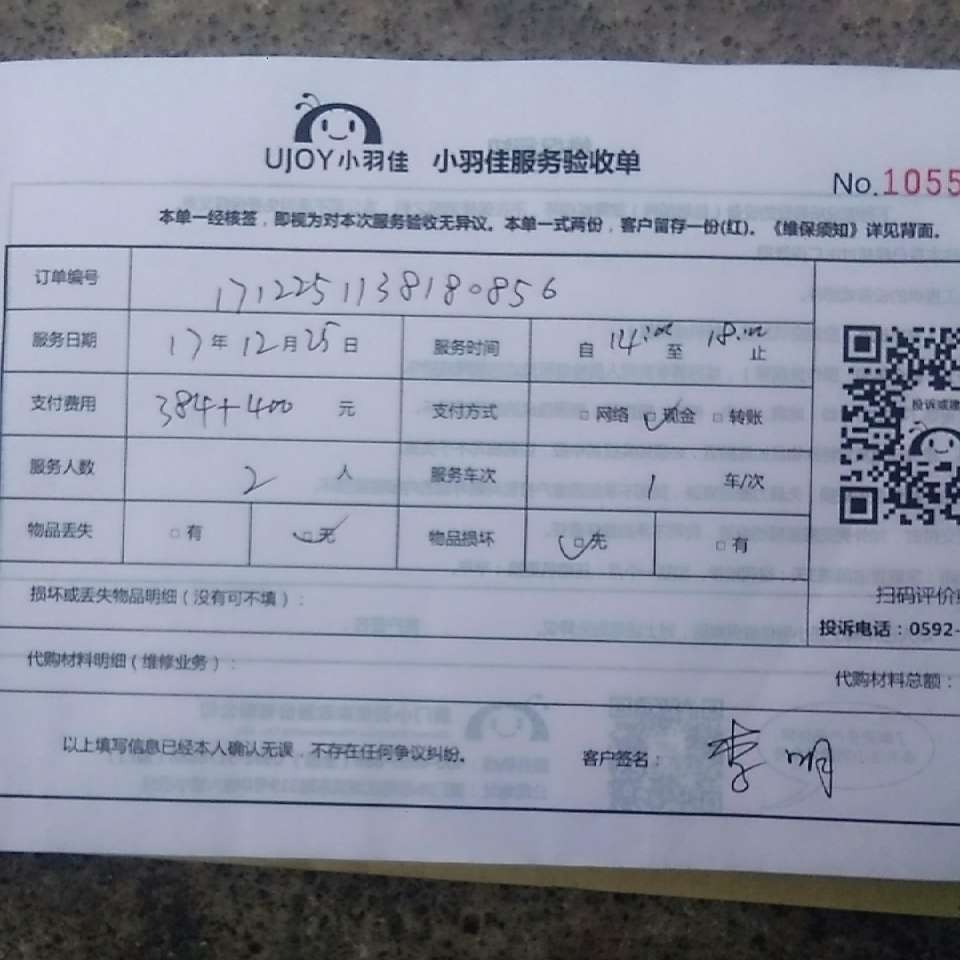 UJOY小羽佳 小羽佳服务验收单
No.1055
本单一经核签，即视为对本次服务验收无异议。本单一式两份，客户留存一份(红)。《维保须知》详见背面。
订单编号 1712251138180856
服务日期 17年12月25日 服务时间 自14:00至18:00止
支付费用 384+400 元 支付方式 □网络 □现金 □转账
投诉或建
服务人数 2 人 服务车次 1 车/次
物品丢失 □有 □无 物品损坏 □无 □有
损坏或丢失物品明细（没有可不填）： 扫码评价
投诉电话：0592-
代购材料明细（维修业务）： 代购材料总额：
以上填写信息已经本人确认无误，不存在任何争议纠纷。 客户签名：李明